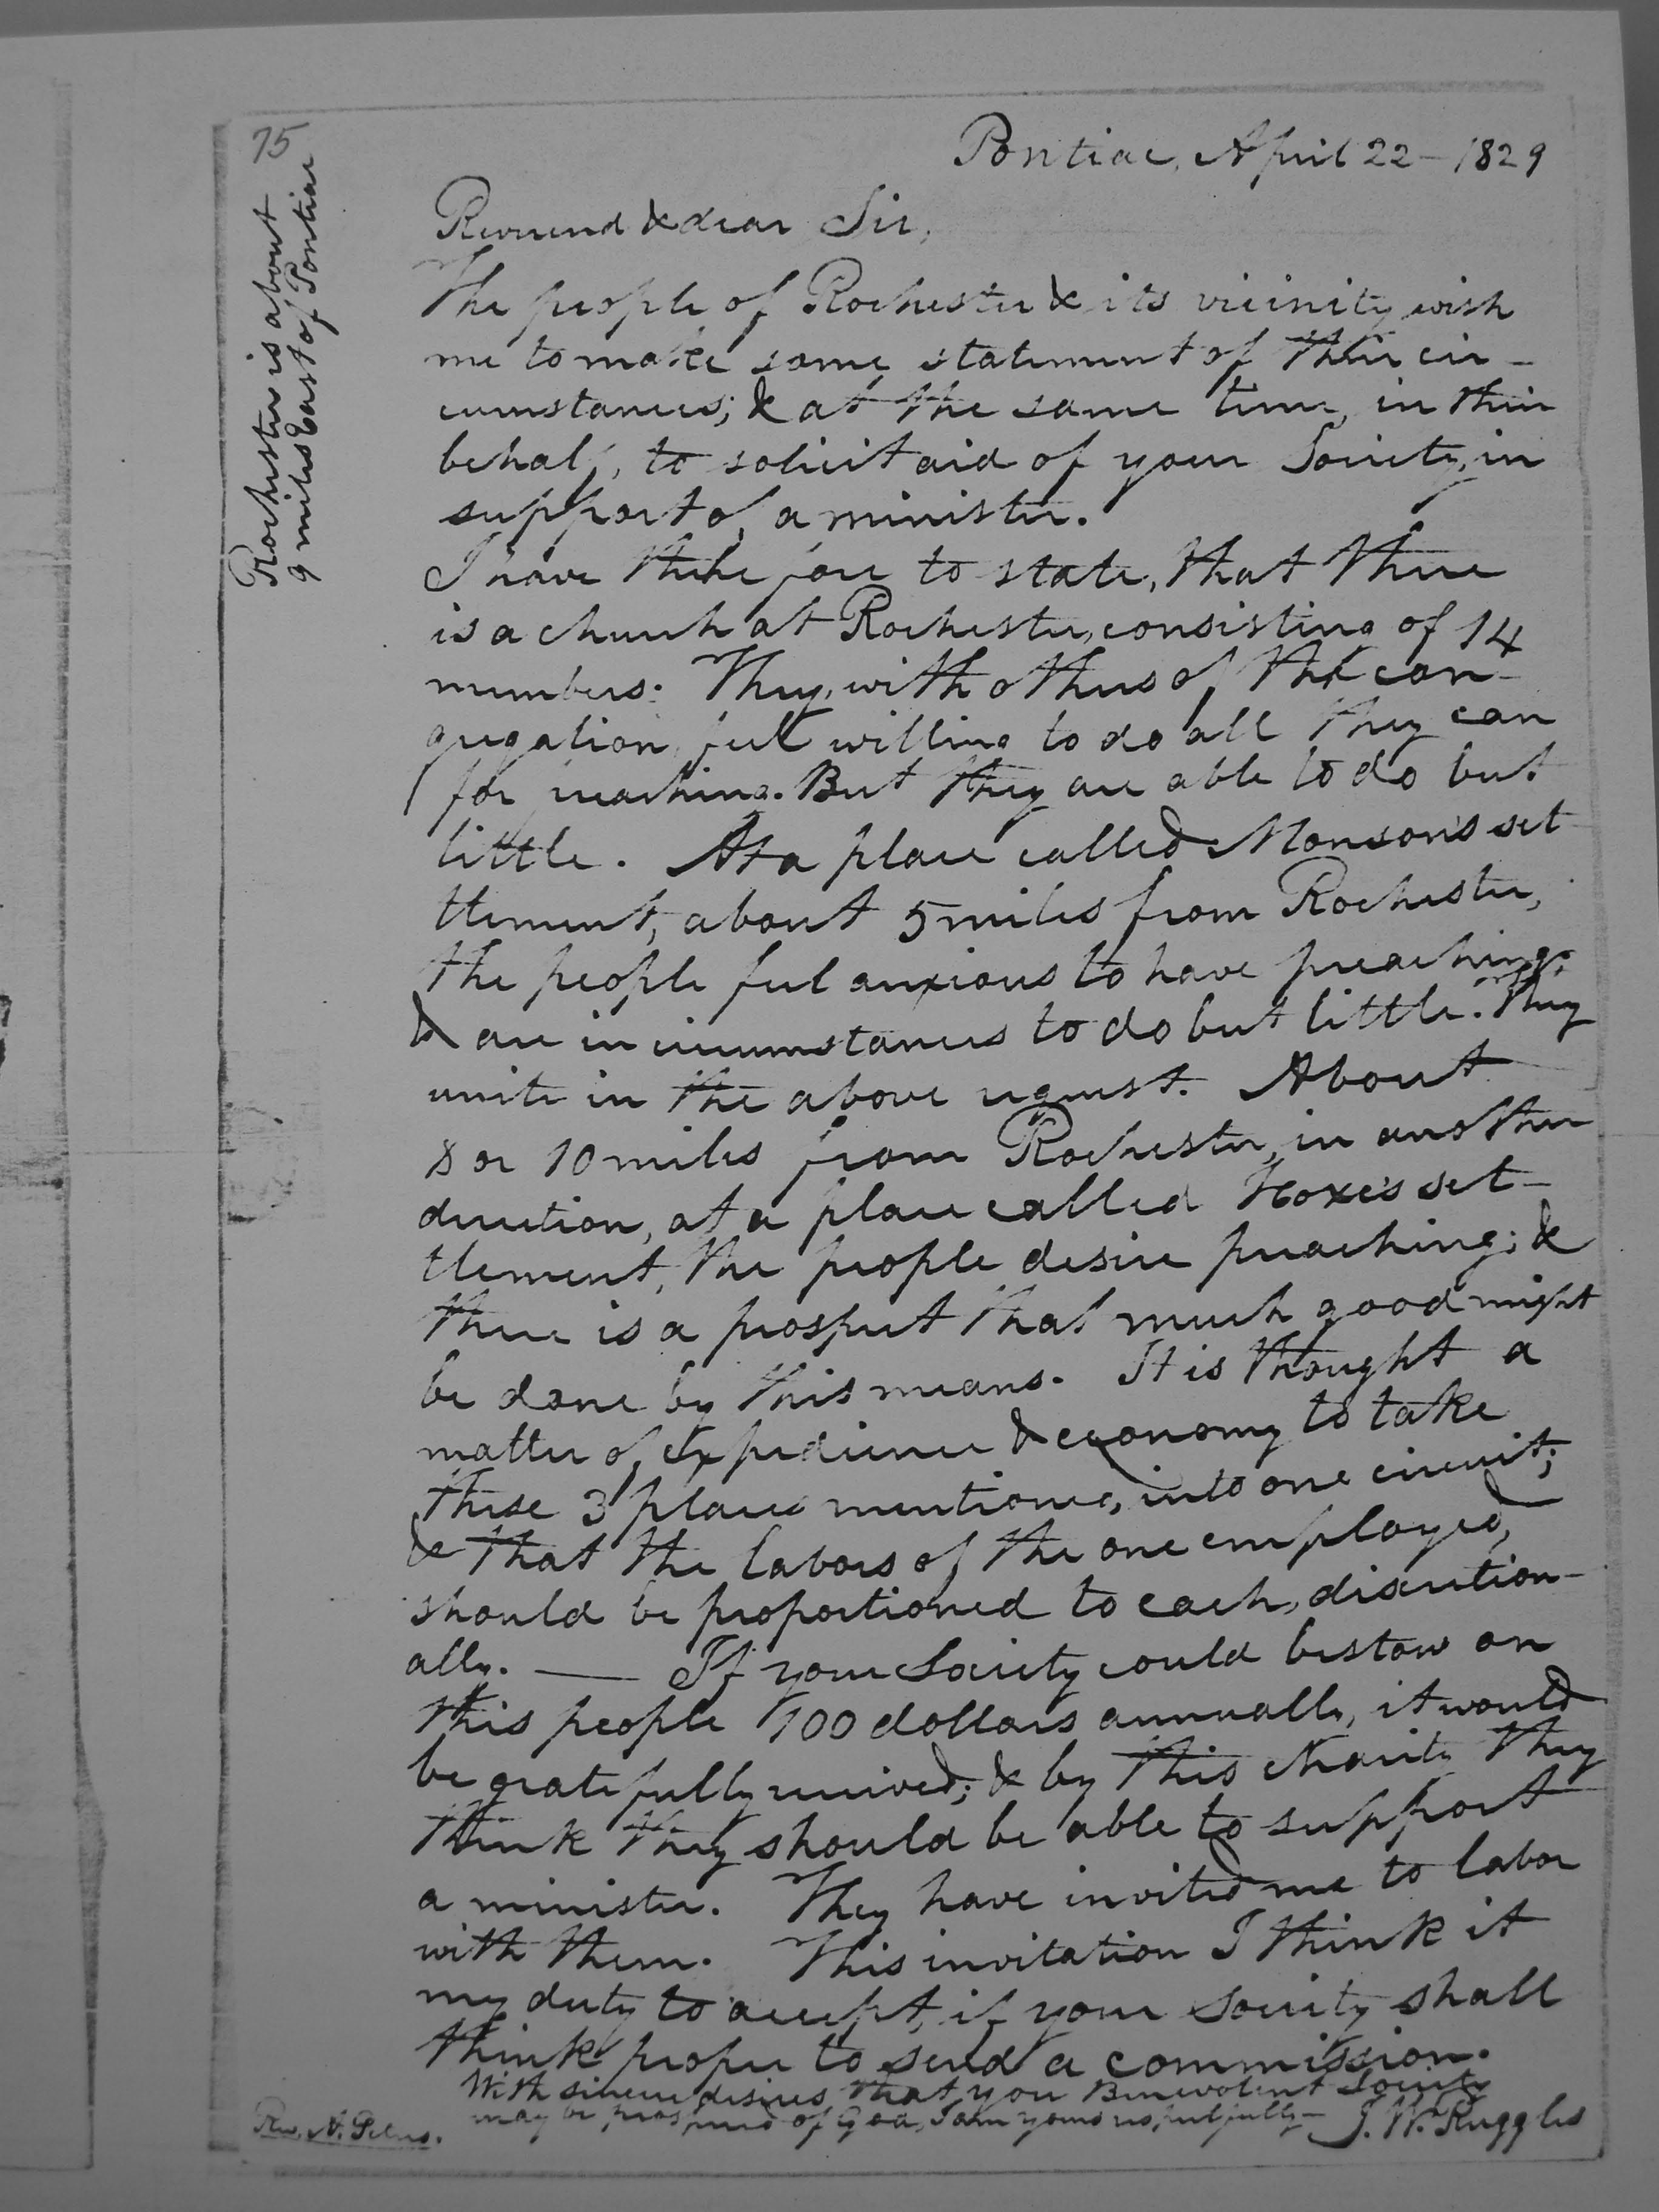 75
Rochester is about
9 miles East of Pontiac
Pontiac, April 22 - 1829
Reverend & dear Sir,
The people of Rochester & its vicinity wish
me to make some statement of their cir-
cumstances; & at the same time, in their
behalf, to solicit aid of your Society, in
support of a minister.
I have therefore to state, that there
is a church at Rochester, consisting of 14
members. They, with others of the con-
gregation, feel willing to do all they can
for preaching. But they are able to do but
little. At a place called Monson's set
tlement, about 5 miles from Rochester,
the people feel anxious to have preaching;
& are in circumstances to do but little. They
unite in the above request. About
8 or 10 miles from Rochester, in another
direction, at a place called Hoxe's set-
tlement, the people desire preaching; &
there is a prospect that much good might
be done by this means. It is thought a
matter of expedience & economy to take
these 3 places mentioned, into one circuit;
& that the labors of the one employed,
should be proportioned to each, discretion-
ally. — If your Society could bestow on
this people 100 dollars annually, it would
be gratefully received; & by this charity they
think they should be able to support
a minister. They have invited me to labor
with them. This invitation I think it
my duty to accept, if your Society shall
think proper to send a commission.
With sincere desires that your Benevolent Society
may be prospered of God, I am yours respectfully -
J. W. Ruggles
Rev. A. Peters.